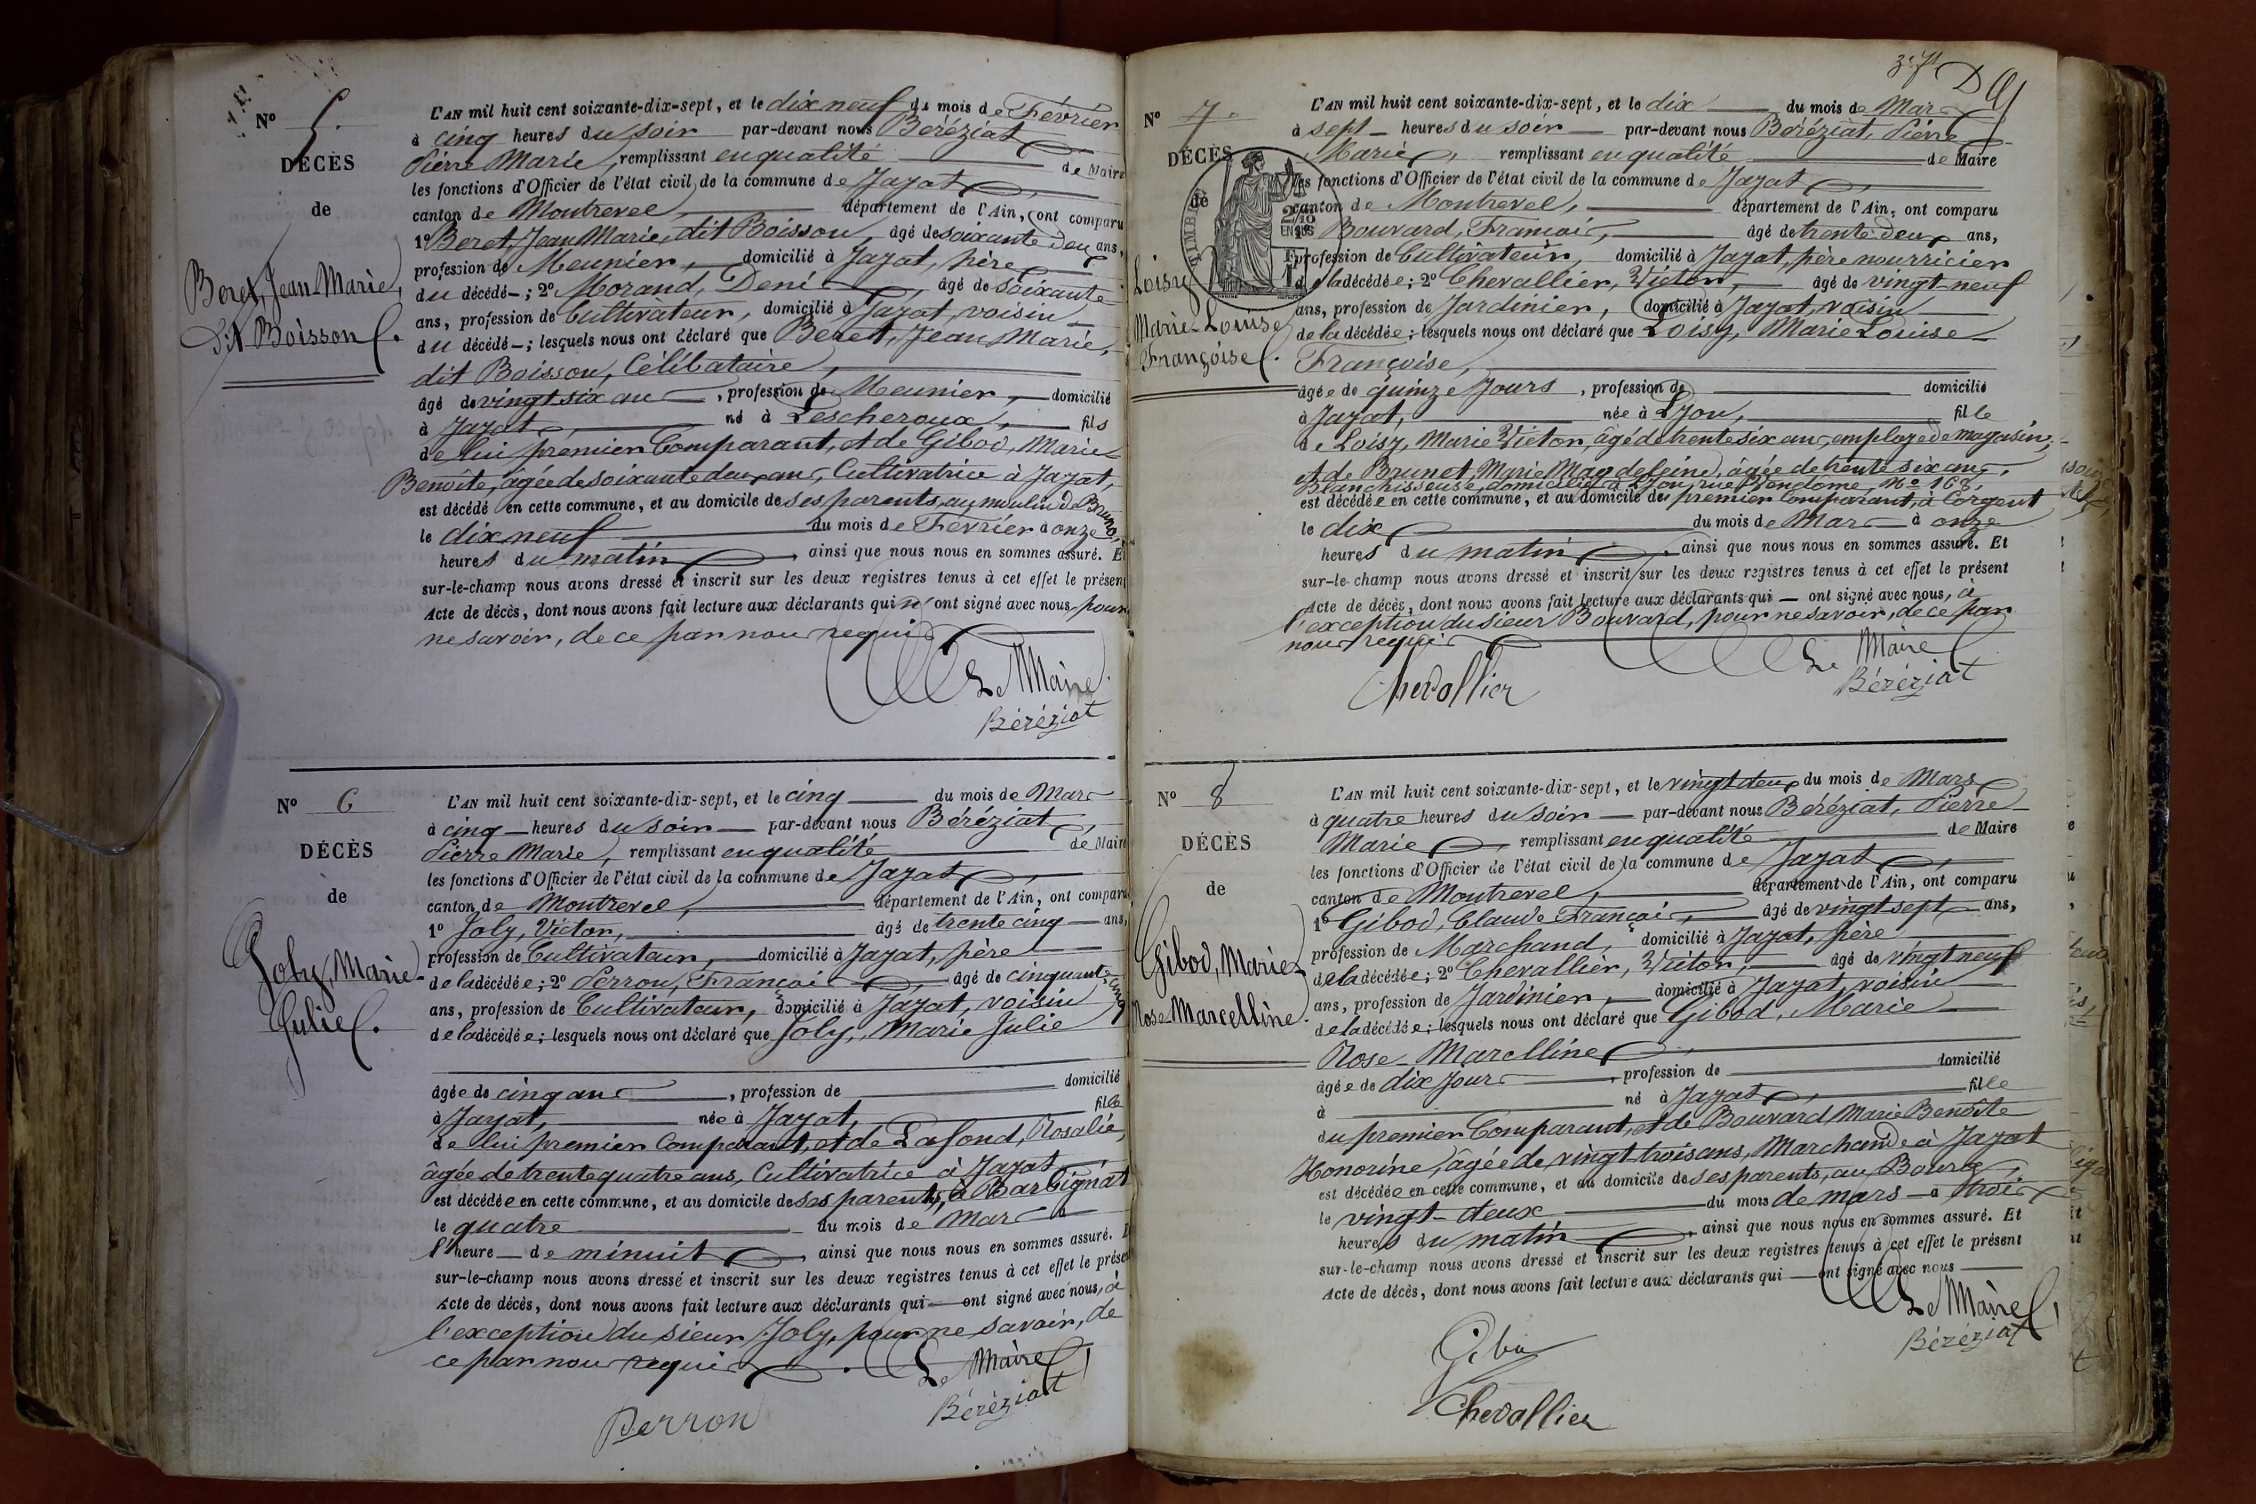 Nº 5.
DÉCÈS
de
Beret, Jean-Marie,
dit Boisson.
L'AN mil huit cent soixante-dix-sept, et le dix neuf du mois de Février
à cinq heures du soir par-devant nous Béréziat
Pierre Marie, remplissant en qualité de Maire
les fonctions d'Officier de l'état civil de la commune de Jayat,
canton de Montrevel, département de l'Ain, ont comparu
1º Beret, Jean Marie, dit Boisson, âgé de soixante deux ans,
profession de Meunier, domicilié à Jayat, père
du décédé ; 2º Morand, Denis, âgé de soixante
ans, profession de Cultivateur, domicilié à Jayat, voisin
du décédé ; lesquels nous ont déclaré que Beret, Jean Marie,
dit Boisson, Célibataire,
âgé de vingt six ans, profession de Meunier, domicilié
à Jayat, né à Lescheroux, fils
de lui premier Comparant, et de Gibod, Marie
Benoîte, âgée de soixante deux ans, Cultivatrice à Jayat,
est décédé en cette commune, et au domicile de ses parents, au moulin de Bruno,
le dix neuf du mois de Février à onze
heures du matin, ainsi que nous nous en sommes assuré. Et
sur-le-champ nous avons dressé et inscrit sur les deux registres tenus à cet effet le présent
Acte de décès, dont nous avons fait lecture aux déclarants qui n'ont signé avec nous, pour
ne savoir, de ce par nous requis
Le Maire
Béréziat
Nº 6
DÉCÈS
de
Joly, Marie
Julie.
L'AN mil huit cent soixante-dix-sept, et le cinq du mois de Mars
à cinq heures du soir par-devant nous Béréziat,
Pierre Marie, remplissant en qualité de Maire
les fonctions d'Officier de l'état civil de la commune de Jayat,
canton de Montrevel, département de l'Ain, ont comparu
1º Joly, Victor, âgé de trente cinq ans,
profession de Cultivateur, domicilié à Jayat, père
de la décédée ; 2º Perron, François, âgé de cinquante cinq
ans, profession de Cultivateur, domicilié à Jayat, voisin
de la décédée ; lesquels nous ont déclaré que Joly, Marie Julie
âgée de cinq ans, profession de domicilié
à Jayat, née à Jayat, fille
de lui premier Comparant, et de Lafond, Rosalie,
âgée de trente quatre ans, Cultivatrice à Jayat
est décédée en cette commune, et au domicile de ses parents, à Barbignat
le quatre du mois de Mars à
l'heure de minuit, ainsi que nous nous en sommes assuré. E
sur-le-champ nous avons dressé et inscrit sur les deux registres tenus à cet effet le prése
Acte de décès, dont nous avons fait lecture aux déclarants qui ont signé avec nous, à
l'exception du sieur Joly, pour ne savoir, de
ce par nous requis.
Le Maire
Béréziat
Perron
Nº 7.
DÉCÈS
de
Loisy
Marie-Louise
Françoise.
L'AN mil huit cent soixante-dix-sept, et le dix du mois de Mars
à sept heures du soir par-devant nous Béréziat, Pierre
Marie, remplissant en qualité de Maire
les fonctions d'Officier de l'état civil de la commune de Jayat,
canton de Montrevel, département de l'Ain, ont comparu
Bouvard, François, âgé de trente deux ans,
profession de Cultivateur, domicilié à Jayat, père nourricier
de la décédée ; 2º Chevallier, Victor, âgé de vingt-neuf
ans, profession de Jardinier, domicilié à Jayat, voisin
de la décédée ; lesquels nous ont déclaré que Loisy, Marie Louise
Françoise,
âgée de quinze jours, profession de domicilié
à Jayat, née à Lyon, fille
de Loisy, Marie Victor, âgé de trente six ans, employé de magasin,
et de Brunet, Marie Magdeleine, âgée de trente six ans,
Blanchisseuse, domiciliés à Lyon, rue Vendome, Nº 168,
est décédée en cette commune, et au domicile de premier Comparant, à Corgent
le dix du mois de Mars à onze
heures du matin, ainsi que nous nous en sommes assuré. Et
sur-le-champ nous avons dressé et inscrit sur les deux registres tenus à cet effet le présent
Acte de décès, dont nous avons fait lecture aux déclarants qui ont signé avec nous, à
l'exception du sieur Bouvard, pour ne savoir, de ce par
nous requis
Le Maire
Béréziat
Chevallier
Nº 8
DÉCÈS
de
Gibod, Marie
Rose-Marcelline.
L'AN mil huit cent soixante-dix-sept, et le vingt deux du mois de Mars
à quatre heures du soir par-devant nous Béréziat, Pierre
Marie, remplissant en qualité de Maire
les fonctions d'Officier de l'état civil de la commune de Jayat,
canton de Montrevel, département de l'Ain, ont comparu
1º Gibod, Claude François, âgé de vingt sept ans,
profession de Marchand, domicilié à Jayat, père
de la décédée ; 2º Chevallier, Victor, âgé de vingt neuf
ans, profession de Jardinier, domicilié à Jayat, voisin
de la décédée ; lesquels nous ont déclaré que Gibod, Marie
Rose Marcelline,
âgée de dix jours, profession de domicilié
à né à Jayat, fille
du premier Comparant, et de Bouvard, Marie Benoîte
Honorine, âgée de vingt-trois ans, Marchande à Jayat
est décédée en cette commune, et au domicile de ses parents, au Bourg,
le vingt-deux du mois de mars à trois
heures du matin, ainsi que nous nous en sommes assuré. Et
sur-le-champ nous avons dressé et inscrit sur les deux registres tenus à cet effet le présent
Acte de décès, dont nous avons fait lecture aux déclarants qui ont signé avec nous
Le Maire
Béréziat
Gibod
Chevallier